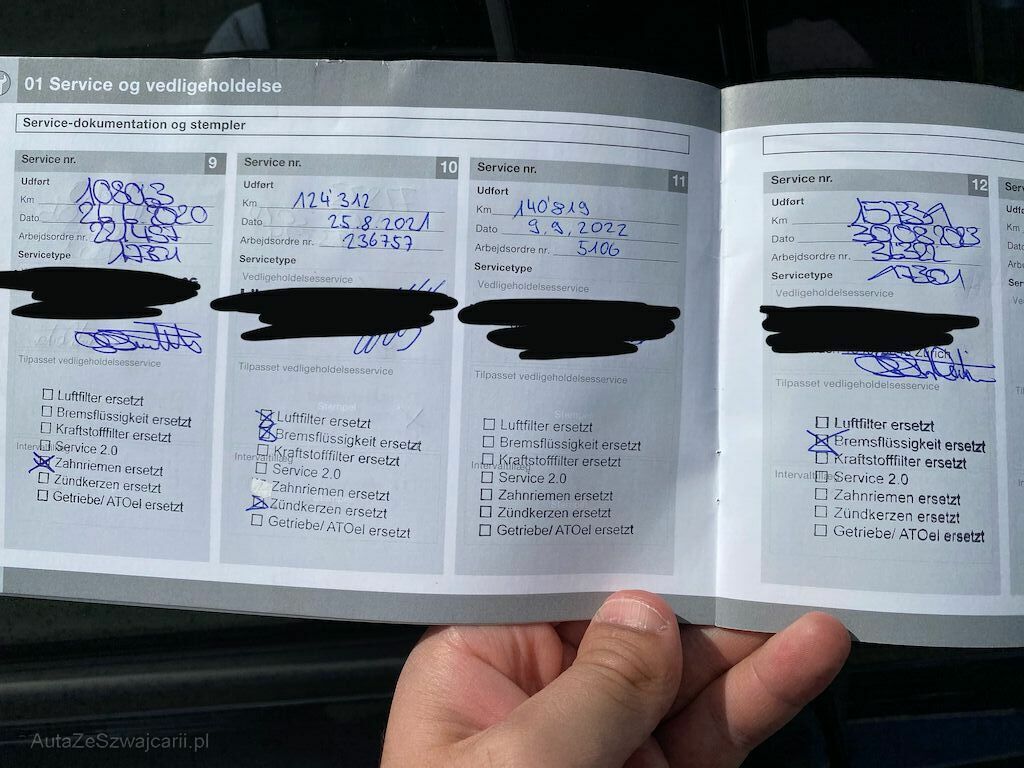 01 Service og vedligeholdelse
Service-dokumentation og stempler
Service nr. 9
Udført
Km
Dato
Arbejdsordre nr.
Servicetype 17301
Tilpasset vedligeholdelsesservice
Luftfilter ersetzt
Bremsflüssigkeit ersetzt
Kraftstofffilter ersetzt
Service 2.0
Zahnriemen ersetzt
Zündkerzen ersetzt
Getriebe/ ATOel ersetzt
Service nr. 10
Udført
Km 124'312
Dato 25.8.2021
Arbejdsordre nr. 236757
Servicetype
Vedligeholdelsesservice
Tilpasset vedligeholdelsesservice
Stempel
Luftfilter ersetzt
Bremsflüssigkeit ersetzt
Kraftstofffilter ersetzt
Intervaltillæg
Service 2.0
Zahnriemen ersetzt
Zündkerzen ersetzt
Getriebe/ ATOel ersetzt
Service nr. 11
Udført
Km 140'819
Dato 9.9.2022
Arbejdsordre nr. 5106
Servicetype
Vedligeholdelsesservice
Tilpasset vedligeholdelsesservice
Stempel
Luftfilter ersetzt
Bremsflüssigkeit ersetzt
Kraftstofffilter ersetzt
Intervaltillæg
Service 2.0
Zahnriemen ersetzt
Zündkerzen ersetzt
Getriebe/ ATOel ersetzt
Service nr. 12
Udført
Km
Dato 30.08.2023
Arbejdsordre nr.
Servicetype 17301
Vedligeholdelsesservice
Zürich
Tilpasset vedligeholdelsesservice
Luftfilter ersetzt
Bremsflüssigkeit ersetzt
Kraftstofffilter ersetzt
Intervaltillæg
Service 2.0
Zahnriemen ersetzt
Zündkerzen ersetzt
Getriebe/ ATOel ersetzt
AutaZeSzwajcarii.pl